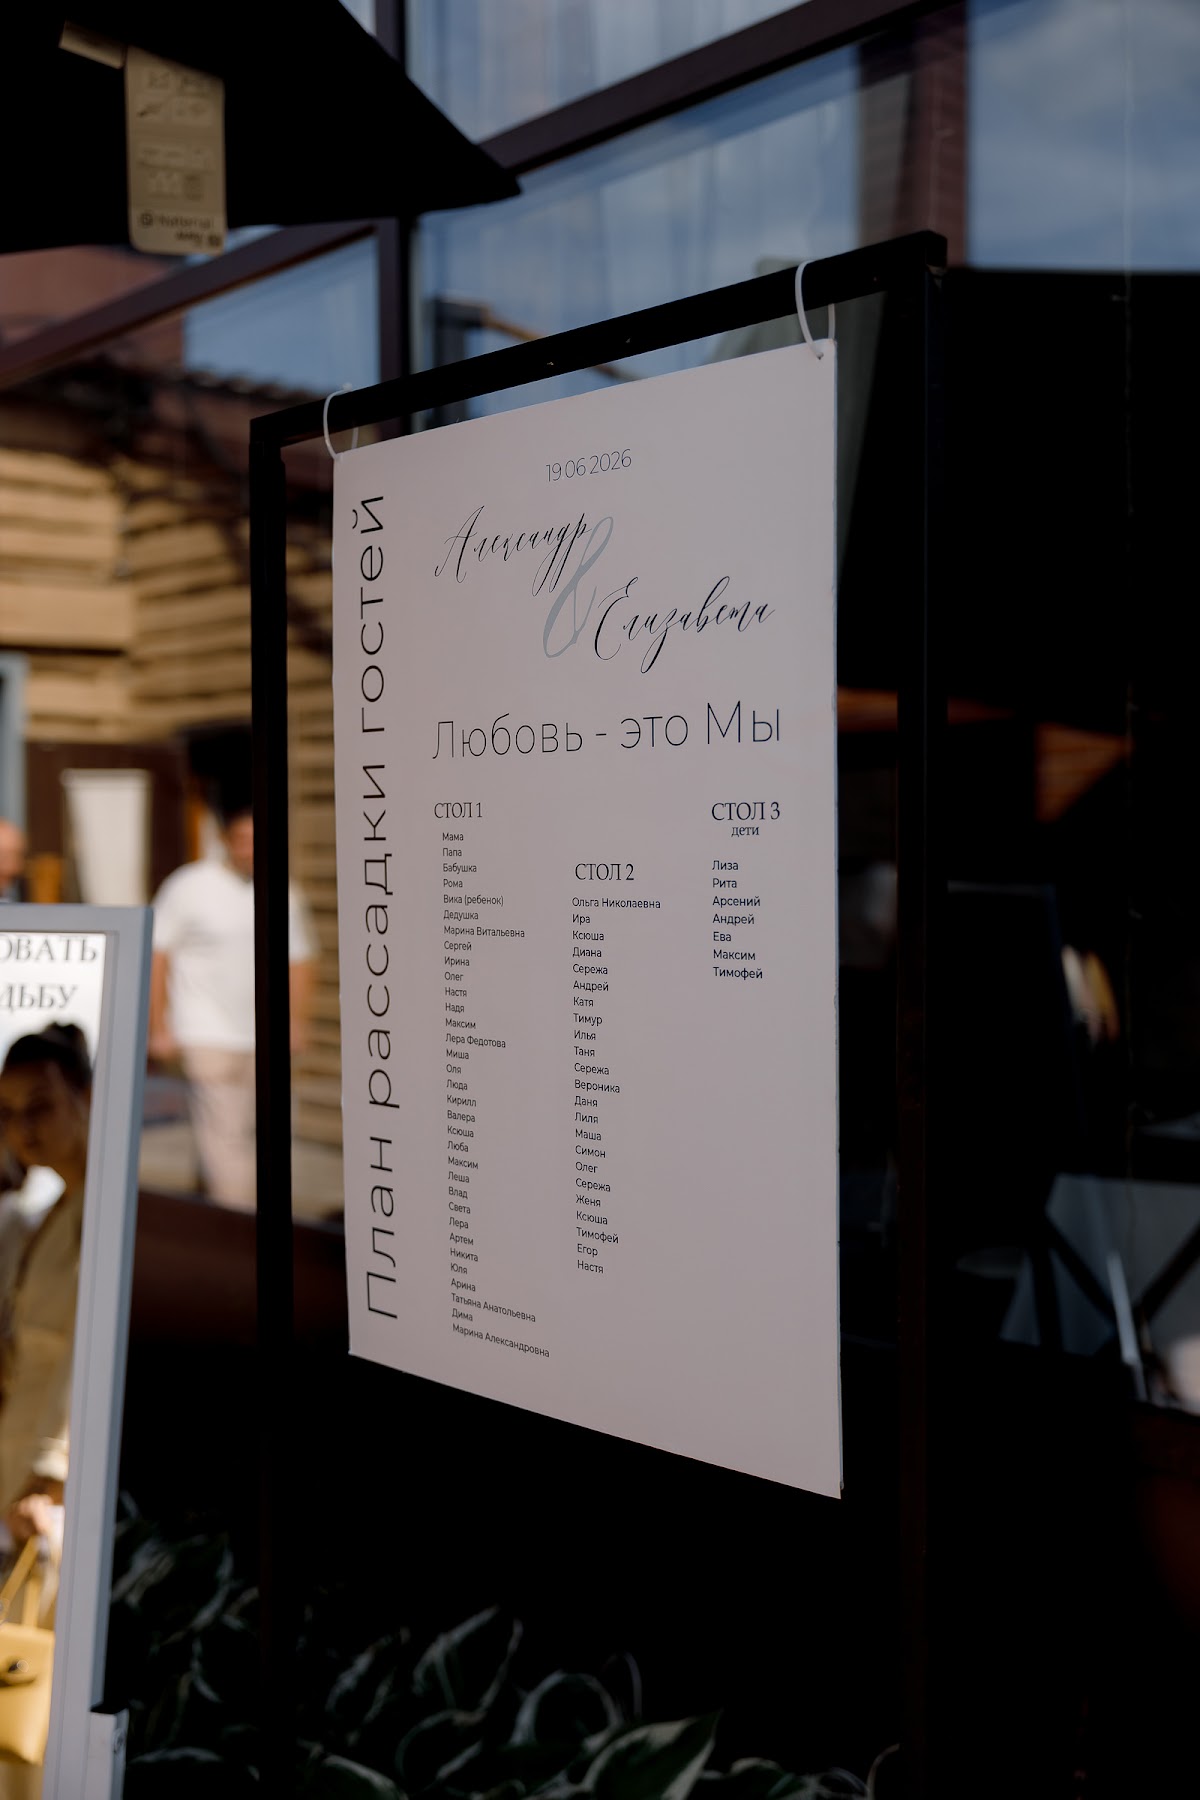 Natural
way
19 06 2026
Александр
&
Елизавета
План рассадки гостей
Любовь - это Мы
СТОЛ 1
Мама
Папа
Бабушка
Рома
Вика (ребенок)
Дедушка
Марина Витальевна
Сергей
Ирина
Олег
Настя
Надя
Максим
Лера Федотова
Миша
Оля
Люда
Кирилл
Валера
Ксюша
Люба
Максим
Леша
Влад
Света
Лера
Артем
Никита
Юля
Арина
Татьяна Анатольевна
Дима
Марина Александровна
СТОЛ 2
Ольга Николаевна
Ира
Ксюша
Диана
Сережа
Андрей
Катя
Тимур
Илья
Таня
Сережа
Вероника
Даня
Лиля
Маша
Симон
Олег
Сережа
Женя
Ксюша
Тимофей
Егор
Настя
СТОЛ 3
дети
Лиза
Рита
Арсений
Андрей
Ева
Максим
Тимофей
ОВАТЬ
ДЬБУ